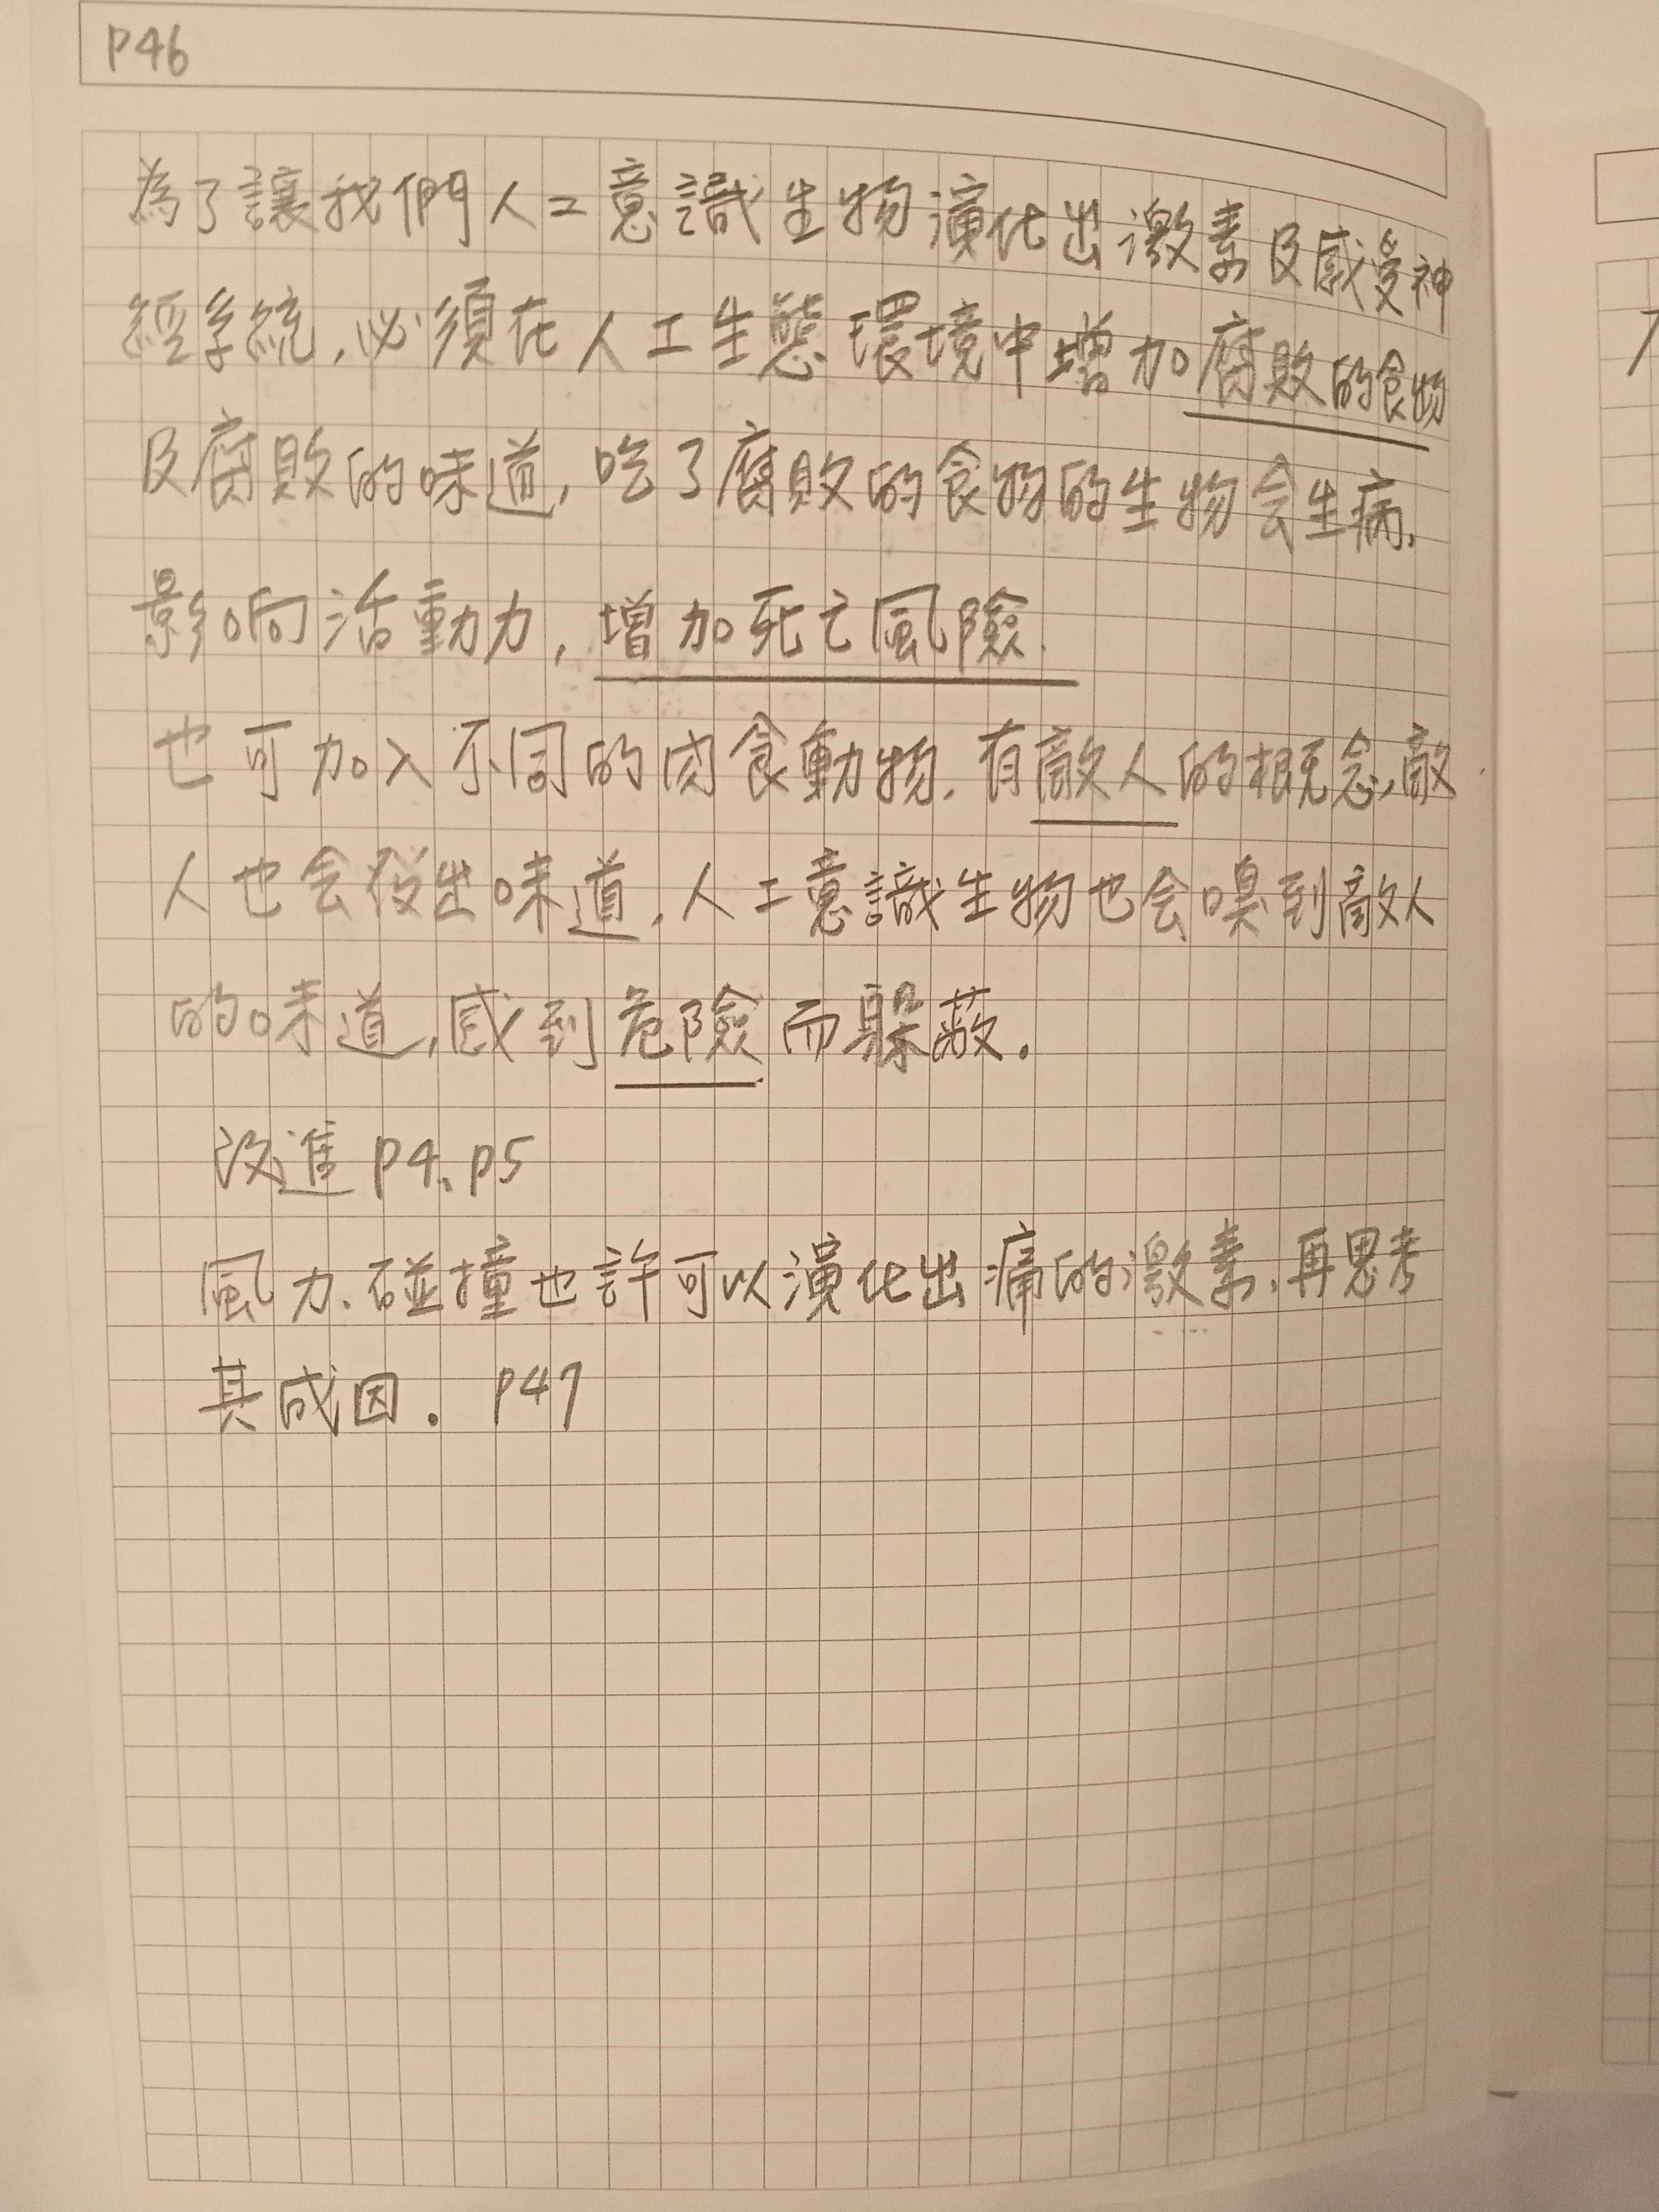 P46
為了讓我們人工意識生物演化出激素及感受神
經系統,必須在人工生態環境中增加腐敗的食物
及腐敗的味道,吃了腐敗的食物的生物会生病.
影响活動力,增加死亡風險.
也可加入不同的肉食動物.有敵人的概念,敵
人也会發出味道.人工意識生物也会嗅到敵人
的味道,感到危險而躲蔽.
改進P4、P5
風力.碰撞也許可以演化出痛的激素.再思考
其成因. P47